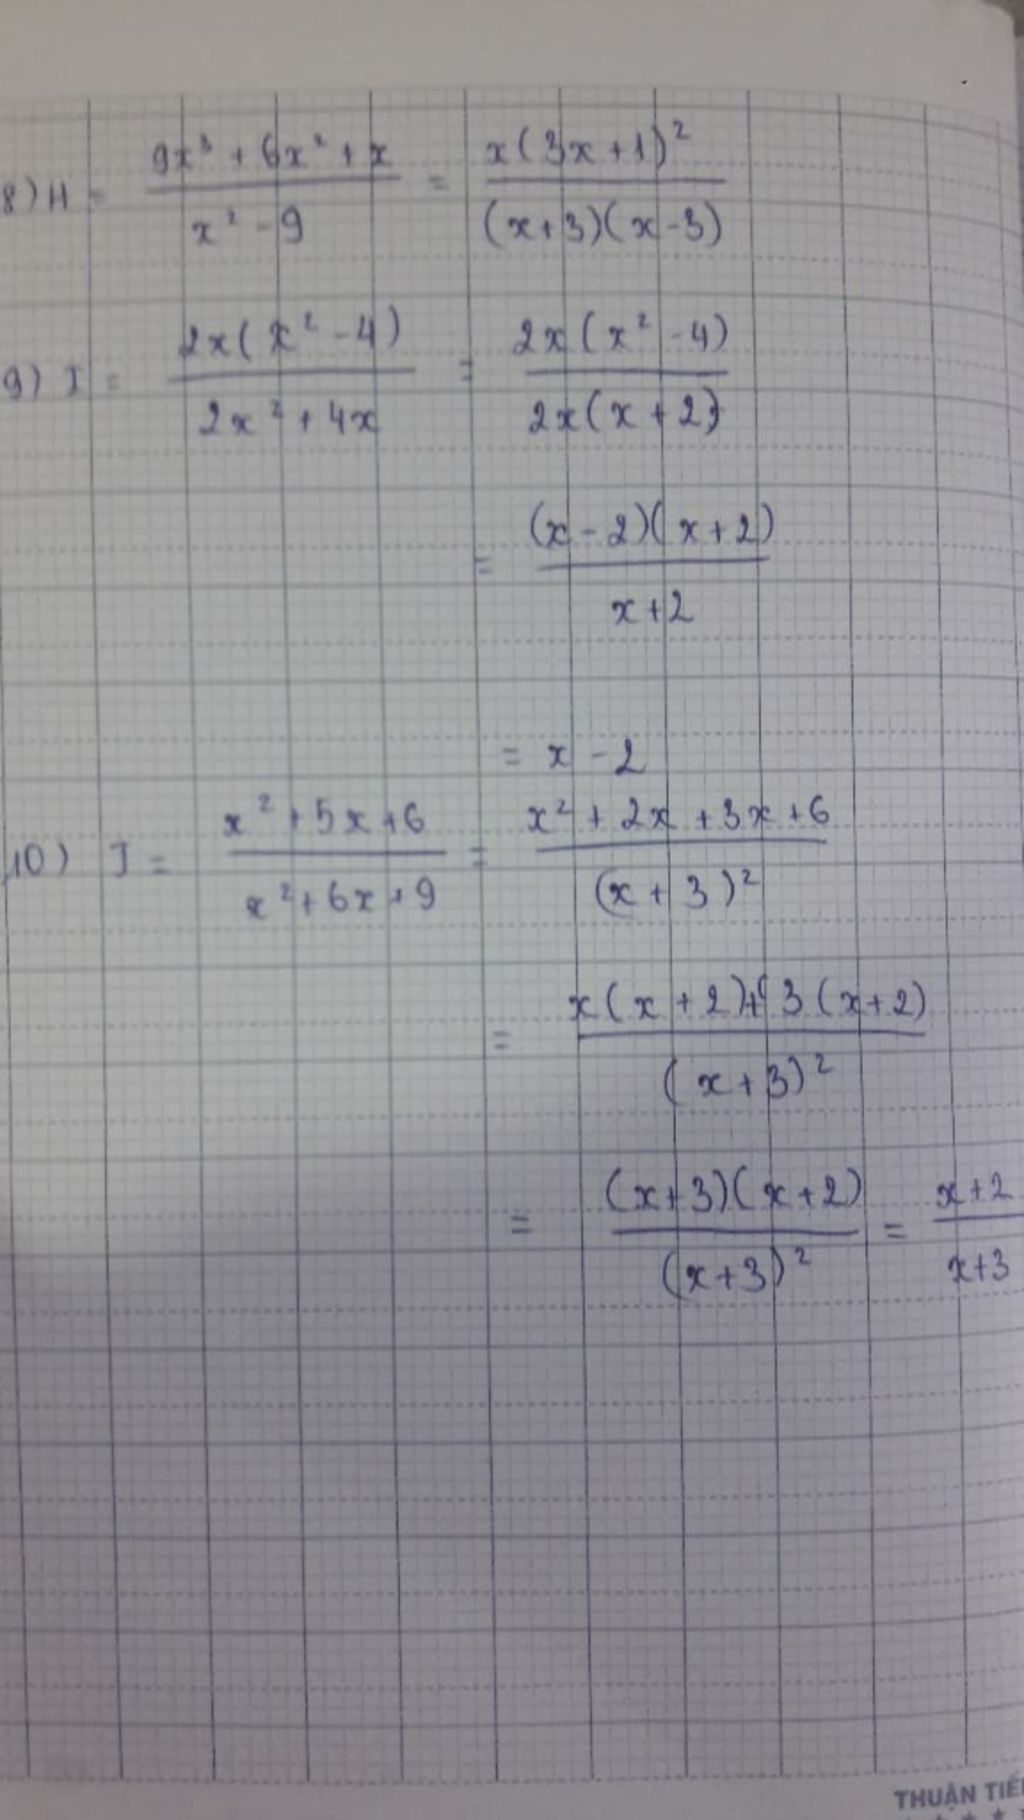 8) H = (9x³ + 6x² + x)/(x² - 9) = x(3x+1)²/((x+3)(x-3))
9) I = 2x(x² - 4)/(2x² + 4x) = 2x(x² - 4)/(2x(x + 2))
= (x - 2)(x + 2)/(x + 2)
= x - 2
10) J = (x² + 5x + 6)/(x² + 6x + 9) = (x² + 2x + 3x + 6)/(x + 3)²
= (x(x + 2) + 3(x + 2))/(x + 3)²
= (x + 3)(x + 2)/(x + 3)² = (x + 2)/(x + 3)
THUẬN TIẾ